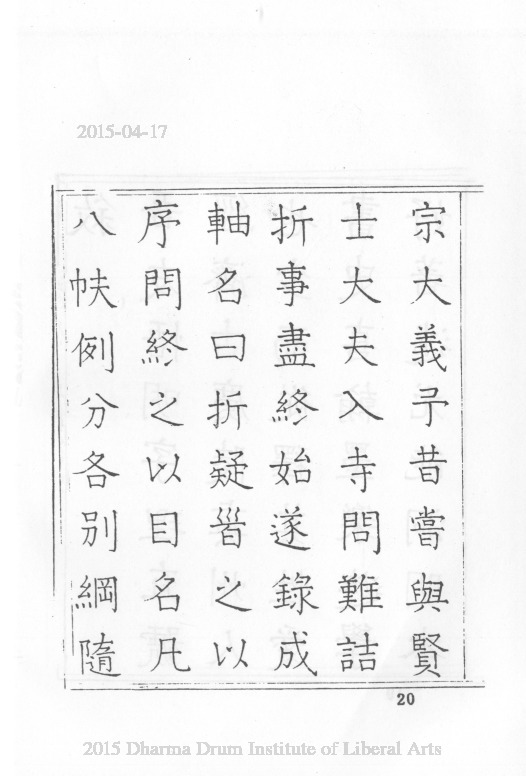 2015-04-17
宗大義予昔嘗與賢
士大夫入寺問難詰
折事盡終始遂錄成
軸名曰折疑首之以
序問終之以目名凡
八帙例分各別綱隨
20
2015 Dharma Drum Institute of Liberal Arts